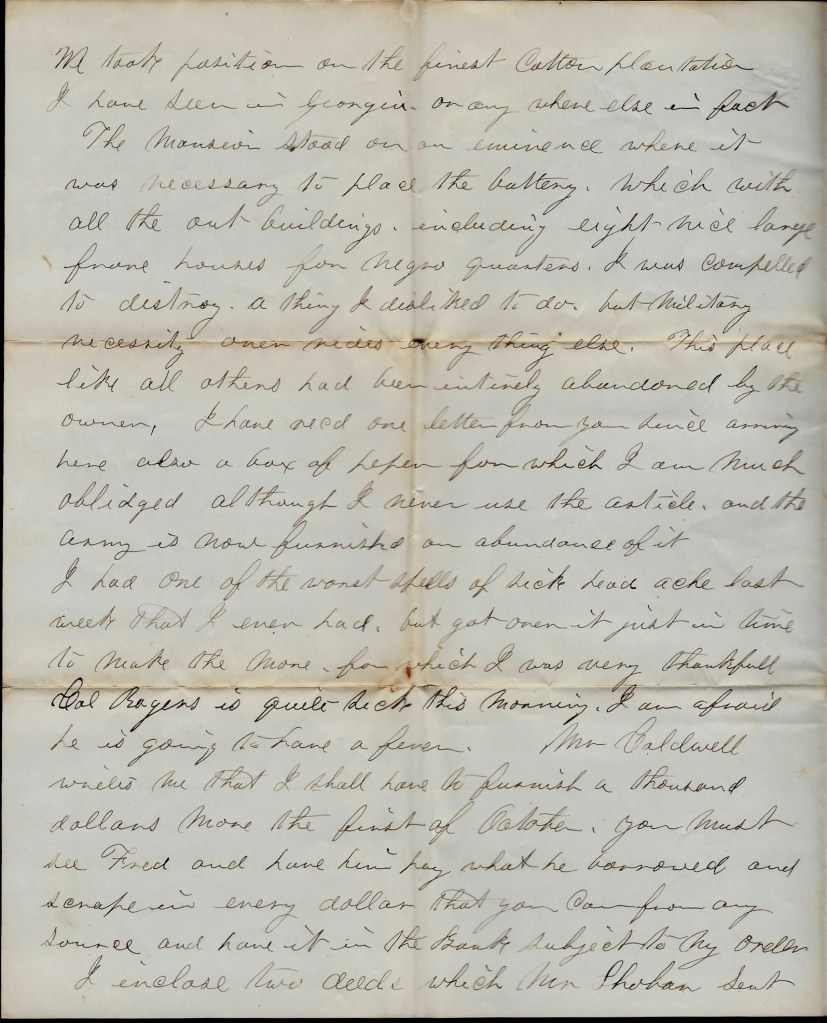 We took position on the finest Cotton plantation
I have seen in Georgia. or any where else in fact
The Mansion stood on an eminence where it
was necessary to place the battery. Which with
all the out buildings. including eight nice large
frame houses for negro quarters. I was compelled
to distroy. a thing I disliked to do. but Military
necessity over rides every thing else. This place
like all others had been intirely abandoned by the
owner, I have recd one letter from you since arriving
here also a box of peper for which I am Much
oblidged although I never use the article. and the
army is now furnished an abundance of it
I had one of the worst spells of sick head ache last
week that I ever had. but got over it just in time
to make the Move. for which I was very thankfull
Col Rogers is quite sick this Morning. I am afraid
he is going to have a fever. Mr Caldwell
writes me that I shall have to furnish a thousand
dollars More the first of October. you Must
see Fred and have him pay what he borrowed and
scrape in every dollar that you Can from any
source and have it in the Bank subject to My order
I inclose two deeds which Mr Shoban sent